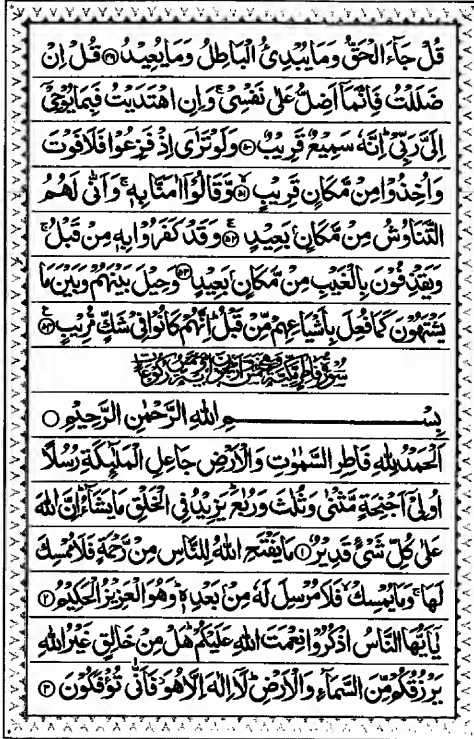 قُلْ جَآءَ الْحَقُّ وَمَا يُبْدِئُ الْبَاطِلُ وَمَا يُعِيْدُ ﴿۴۹﴾ قُلْ اِنْ
ضَلَلْتُ فَاِنَّمَآ اَضِلُّ عَلٰى نَفْسِيْ ۚ وَاِنِ اهْتَدَيْتُ فَبِمَا يُوْحِيْٓ
اِلَيَّ رَبِّيْ ؕ اِنَّهٗ سَمِيْعٌ قَرِيْبٌ ﴿۵۰﴾ وَلَوْ تَرٰٓى اِذْ فَزِعُوْا فَلَا فَوْتَ
وَاُخِذُوْا مِنْ مَّكَانٍ قَرِيْبٍ ﴿۵۱﴾ وَّقَالُوْٓا اٰمَنَّا بِهٖ ۚ وَاَنّٰى لَهُمُ
التَّنَاوُشُ مِنْ مَّكَانٍۭ بَعِيْدٍ ﴿۵۲﴾ وَّقَدْ كَفَرُوْا بِهٖ مِنْ قَبْلُ ۚ
وَيَقْذِفُوْنَ بِالْغَيْبِ مِنْ مَّكَانٍۭ بَعِيْدٍ ﴿۵۳﴾ وَحِيْلَ بَيْنَهُمْ وَبَيْنَ مَا
يَشْتَهُوْنَ كَمَا فُعِلَ بِاَشْيَاعِهِمْ مِّنْ قَبْلُ ؕ اِنَّهُمْ كَانُوْا فِيْ شَكٍّ مُّرِيْبٍ ﴿۵۴﴾
سُوْرَةُ فَاطِرٍ مَكِّيَّةٌ
بِسْمِ اللّٰهِ الرَّحْمٰنِ الرَّحِيْمِ ○
اَلْحَمْدُ لِلّٰهِ فَاطِرِ السَّمٰوٰتِ وَالْاَرْضِ جَاعِلِ الْمَلٰٓئِكَةِ رُسُلًا
اُولِيْٓ اَجْنِحَةٍ مَّثْنٰى وَثُلٰثَ وَرُبٰعَ ؕ يَزِيْدُ فِي الْخَلْقِ مَا يَشَآءُ ؕ اِنَّ اللّٰهَ
عَلٰى كُلِّ شَيْءٍ قَدِيْرٌ ﴿۱﴾ مَا يَفْتَحِ اللّٰهُ لِلنَّاسِ مِنْ رَّحْمَةٍ فَلَا مُمْسِكَ
لَهَا ۚ وَمَا يُمْسِكْ ۙ فَلَا مُرْسِلَ لَهٗ مِنْۢ بَعْدِهٖ ؕ وَهُوَ الْعَزِيْزُ الْحَكِيْمُ ﴿۲﴾
يٰٓاَيُّهَا النَّاسُ اذْكُرُوْا نِعْمَتَ اللّٰهِ عَلَيْكُمْ ؕ هَلْ مِنْ خَالِقٍ غَيْرُ اللّٰهِ
يَرْزُقُكُمْ مِّنَ السَّمَآءِ وَالْاَرْضِ ؕ لَآ اِلٰهَ اِلَّا هُوَ ۖ فَاَنّٰى تُؤْفَكُوْنَ ﴿۳﴾